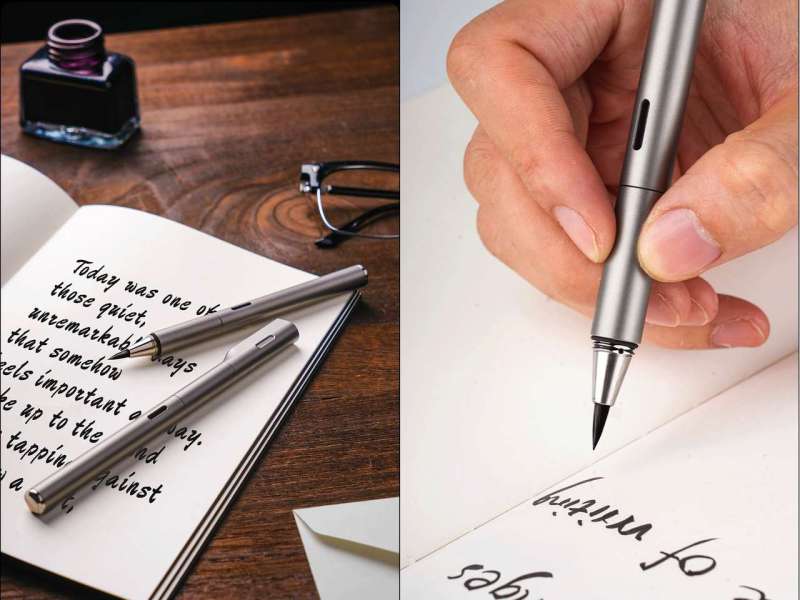 Today was one of
those quiet,
unremarkable days
that somehow
feels important
up to the
tapping against
a
of writing